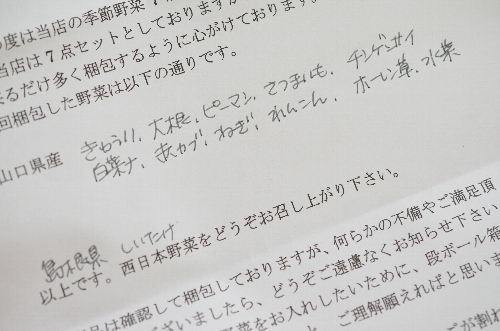 の度は当店の季節野菜
当店は7点セットとしておりますが
来るだけ多く梱包するように心がけております。
回梱包した野菜は以下の通りです。
山口県産 きゅうり、大根、ピーマン、さつまいも、チンゲンサイ
白菜ナ、赤カブ、ねぎ、れんこん、ホーレン草、水菜
島根県 しいたけ
以上です。西日本野菜をどうぞお召し上がり下さい。
品は確認して梱包しておりますが、何らかの不備やご満足頂
ございましたら、どうぞご遠慮なくお知らせ下さい
野菜をお入れしたいために、段ボール箱
、ご理解願えればと思いま
が割れ